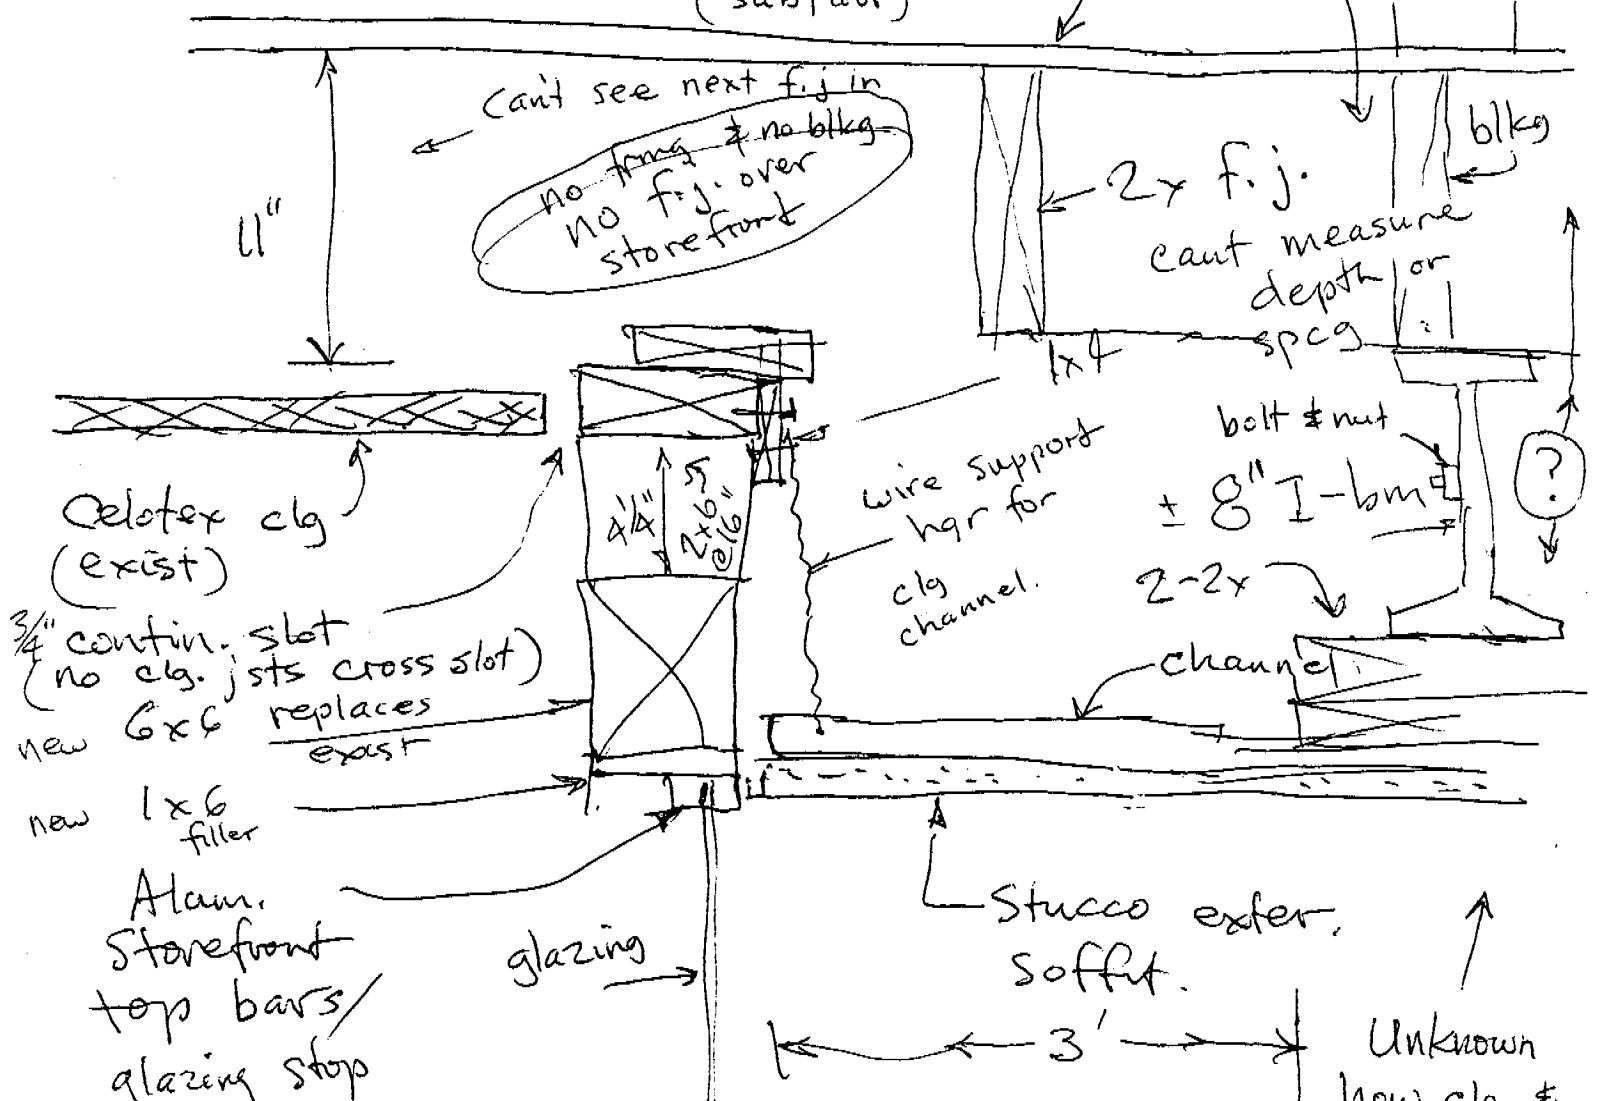 (subflr)
can't see next f.j in
no frmg & no blkg
no f.j. over
storefront
11"
2x f.j.
cant measure
depth or
spcg
blkg
1x4
bolt & nut
± 8" I-bm
?
2-2x
wire support
hgr for
clg
channel.
channel
4 1/4"
2x6's
@16"
Celotex clg
(exist)
3/4" contin. slot
(no clg. jsts cross slot)
new 6x6 replaces
exist
new 1x6
filler
Alum.
Storefront
top bars/
glazing stop
glazing
Stucco exter.
Soffit.
3'
Unknown
how clg &